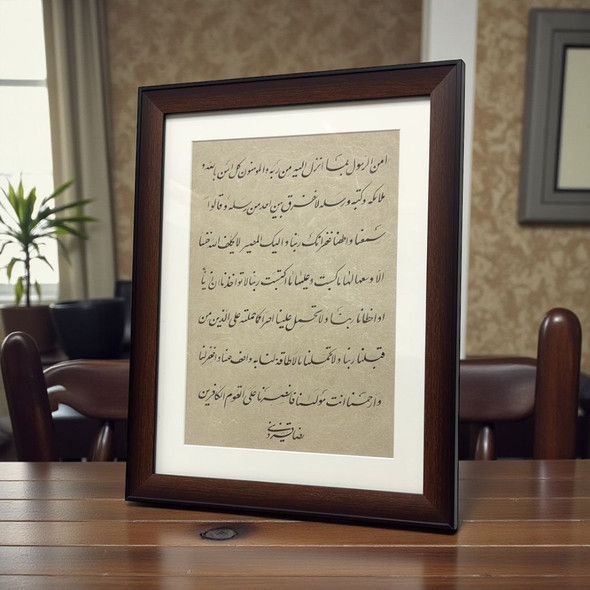 امن الرسول بما انزل الیه من ربه و المومنون کل امن بالله و
ملائکه وکتبه و رسله لا نفرق بین احد من رسله و قالوا
سمعنا و اطعنا غفرانک ربنا و الیک المصیر لا یکلف الله نفسا
الا وسعها لها ما کسبت و علیها ما اکتسبت ربنا لا تواخذنا ان
او اخطانا ربنا ولا تحمل علینا اصرا کما حملته علی الذین من
قبلنا ربنا ولا تحملنا ما لا طاقة لنا به و اعف عنا و اغفر لنا
و ارحمنا انت مولینا فانصرنا علی القوم الکافرین